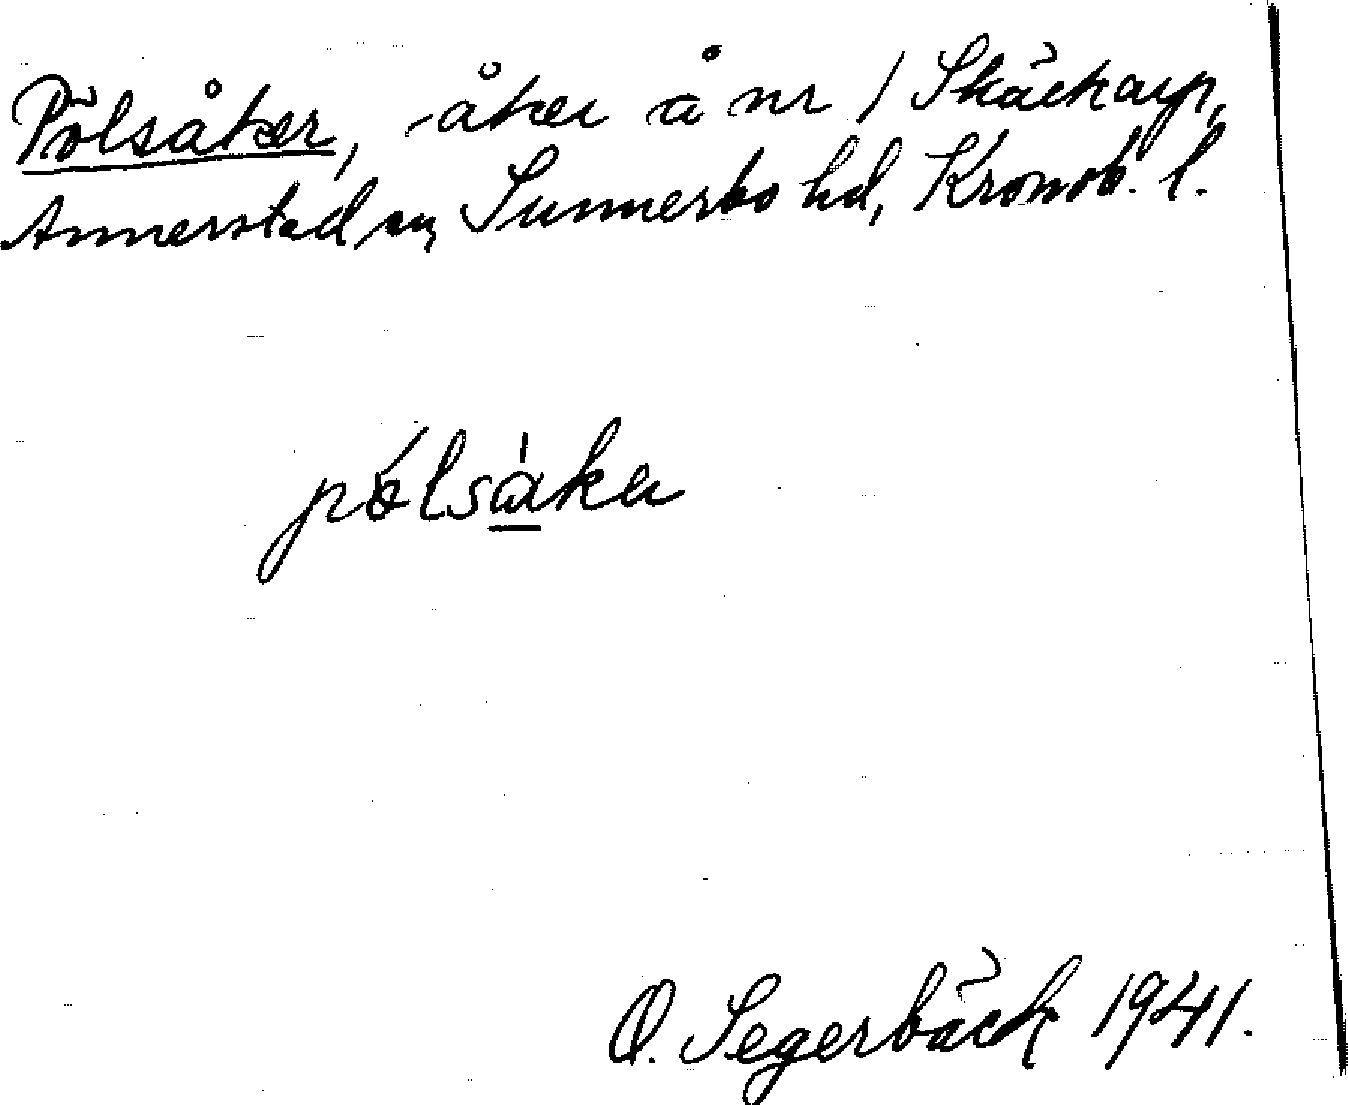 Pölsåker, åker å nr 1 Skäckarp,
Annerstad sn, Sunnerbo hd, Kronob. l.
pölsåka
O. Segerbäck 1941.